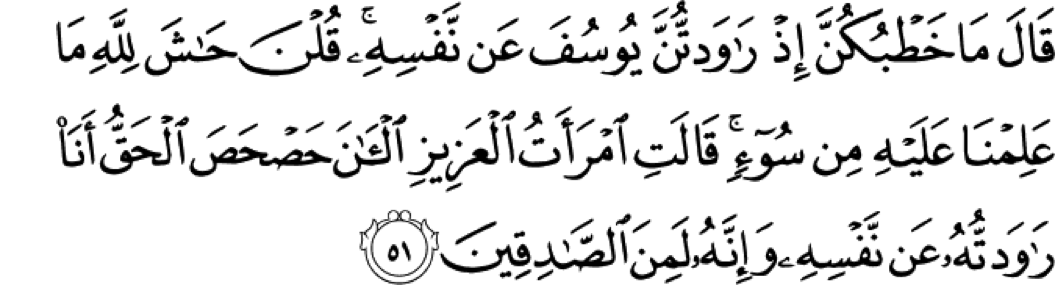 قَالَ مَا خَطۡبُكُنَّ إِذۡ رَٰوَدتُّنَّ يُوسُفَ عَن نَّفۡسِهِۦۚ قُلۡنَ حَٰشَ لِلَّهِ مَا
عَلِمۡنَا عَلَيۡهِ مِن سُوٓءٖۚ قَالَتِ ٱمۡرَأَتُ ٱلۡعَزِيزِ ٱلۡـَٰٔنَ حَصۡحَصَ ٱلۡحَقُّ أَنَا۠
رَٰوَدتُّهُۥ عَن نَّفۡسِهِۦ وَإِنَّهُۥ لَمِنَ ٱلصَّٰدِقِينَ ٥١